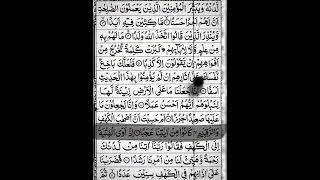 لَّدُنْهُ وَيُبَشِّرَ الْمُؤْمِنِيْنَ الَّذِيْنَ يَعْمَلُوْنَ الصّٰلِحٰتِ
اَنَّ لَهُمْ اَجْرًا حَسَنًا ۝ مَّاكِثِيْنَ فِيْهِ اَبَدًا ۝
وَّيُنْذِرَ الَّذِيْنَ قَالُوا اتَّخَذَ اللّٰهُ وَلَدًا ۝ مَا لَهُمْ بِهٖ
مِنْ عِلْمٍ وَّلَا لِاٰبَآئِهِمْ ؕ كَبُرَتْ كَلِمَةً تَخْرُجُ مِنْ
اَفْوَاهِهِمْ ؕ اِنْ يَّقُوْلُوْنَ اِلَّا كَذِبًا ۝ فَلَعَلَّكَ بَاخِعٌ
نَّفْسَكَ اٰثَارِهِمْ اِنْ لَّمْ يُؤْمِنُوْا بِهٰذَا الْحَدِيْثِ
اَسَفًا ۝ اِنَّا جَعَلْنَا مَا عَلَى الْاَرْضِ زِيْنَةً لَّهَا
لِنَبْلُوَهُمْ اَيُّهُمْ اَحْسَنُ عَمَلًا ۝ وَاِنَّا لَجٰعِلُوْنَ مَا
عَلَيْهَا صَعِيْدًا جُرُزًا ۝ اَمْ حَسِبْتَ اَنَّ اَصْحٰبَ الْكَهْفِ
وَالرَّقِيْمِ ۙ كَانُوْا مِنْ اٰيٰتِنَا عَجَبًا ۝ اِذْ اَوَى الْفِتْيَةُ
اِلَى الْكَهْفِ فَقَالُوْا رَبَّنَآ اٰتِنَا مِنْ لَّدُنْكَ
رَحْمَةً وَّهَيِّئْ لَنَا مِنْ اَمْرِنَا رَشَدًا ۝ فَضَرَبْنَا
عَلٰٓى اٰذَانِهِمْ فِى الْكَهْفِ سِنِيْنَ عَدَدًا ۝ ثُمَّ